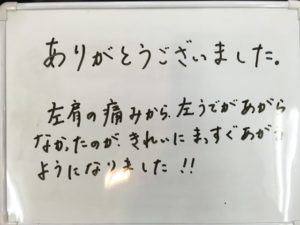 ありがとうございました。
左肩の痛みから、左うでがあがら
なかったのが、きれいにまっすぐあがる
ようになりました!!